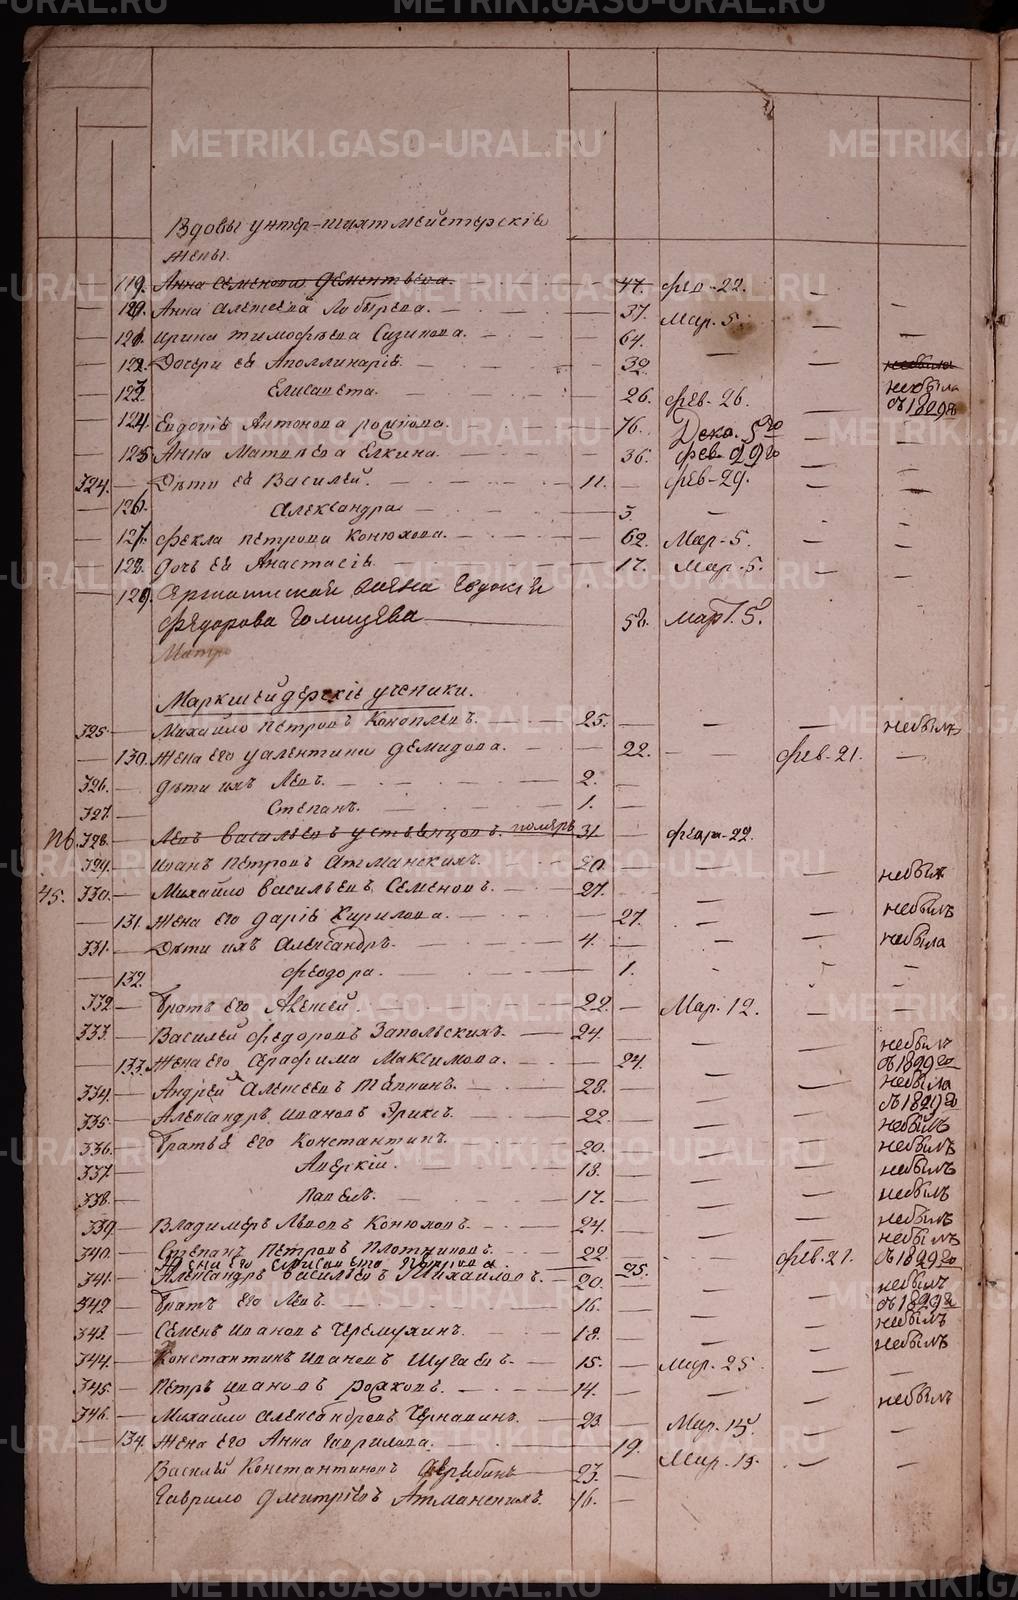 METRIKI.GASO-URAL.RU
Вдовы унтер-шахтмейстерскіе
жены.
119. Анна Семенова Дементьева. 47. фев-22. —
120. Анна Алексеева Лобырева. 37. Мар. 5. — —
121. Ирина Тимофѣева Сизикова. 64. — —
122. Дочери ея Аполлинарія. 32. — небыла
123. Елисавета. 26. фев-26. — небыла
съ 1829го
124. Евдокія Антонова 76. Дека. 5го —
125. Анна Матвѣева Елкина. 36. фев-29го —
324. Дѣти ея Василей. 11. — фев-29. — —
126. Александра. 5. — — —
127. Фекла Петрова Конюхова. 62. Мар-5. — —
128. дочь ея Анастасія. 17. Мар-5. — —
129. Евдокія
Федорова Голицева 58. март. 5.
Маркшейдерскіе ученики.
325. Михайло Петровъ Коноплевъ. 25. — — — небылъ
130. Жена его Валентина Демидова. — 22. — фев-21. —
326. дѣти ихъ Левъ. 2. —
327. Степанъ. 1. —
328. Левъ Васильевъ Устьянцовъ. померъ 31 — февр-22. —
329. Иванъ Петровъ Атманскихъ. 20. — — небылъ
45. 330. Михайло Васильевъ Семеновъ. 27. — — — небылъ
131. Жена его Дарія Кирилова. — 27. — — небыла
331. Дѣти ихъ Александръ. 4. — — —
132. Феодора. 1. — — —
332 Братъ его Алексей. 22. — Мар. 12. — —
333. Василей Федоровъ Запольскихъ. 24. — — небылъ
съ 1829го
133. Жена его Серафима Максимова. — 24. — — небыла
съ 1829го
334. Андрей Алексеевъ Тепинъ. 28. — — — небылъ
335. Александръ Ивановъ Эрихъ. 22. — — — небылъ
336. Братья его Константинъ. 20. — — — небылъ
337. Аверкій. 18. — — — небылъ
338. Павелъ. 17. — — — небылъ
339. Владимеръ Львовъ Конюховъ. 24. — — — небылъ
340. Степанъ Петровъ Плотниковъ. 22. — — съ 1829го
Жена его Петрова 25. фев-21.
341. Александръ Васильевъ Михайловъ. 20. — — — небылъ
съ 1829го
342 Братъ его Левъ. 16. — — — небылъ
343. Семенъ Ивановъ Черемухинъ. 18. — — — небылъ
344. Константинъ Ивановъ Шугаевъ. 15. — Мар. 25. — —
345. Петръ Ивановъ 14. — — — небылъ
346. Михайло Александровъ Чернавинъ. 23. — Мар. 15. — —
134. Жена его Анна Гаврилова. — 19. Мар. 15. — —
Василей Константиновъ 23. —
Гаврило Дмитріевъ Атманскихъ. 16. —